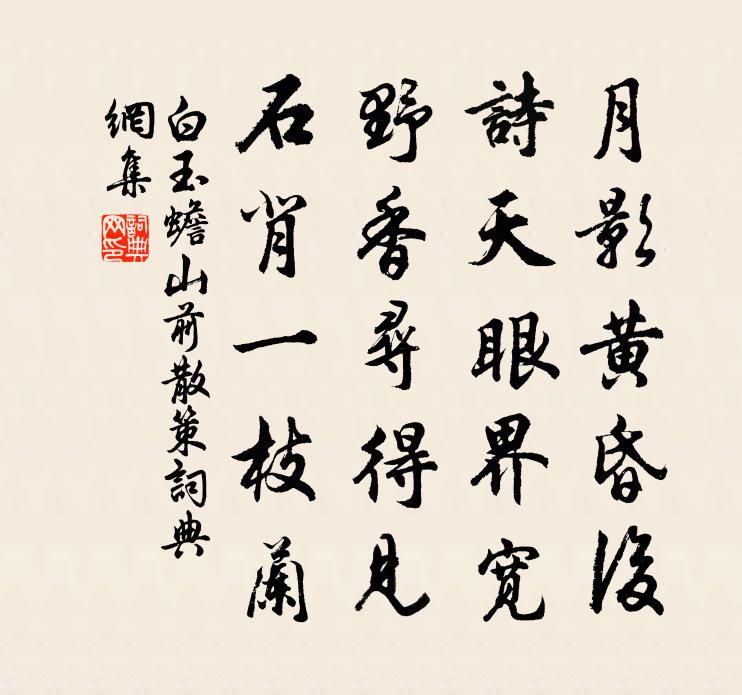 月影黄昏後
詩天眼界寬
野香尋得見
石背一枝蘭
白玉蟾山前散策詞典
網集
詞典
網印